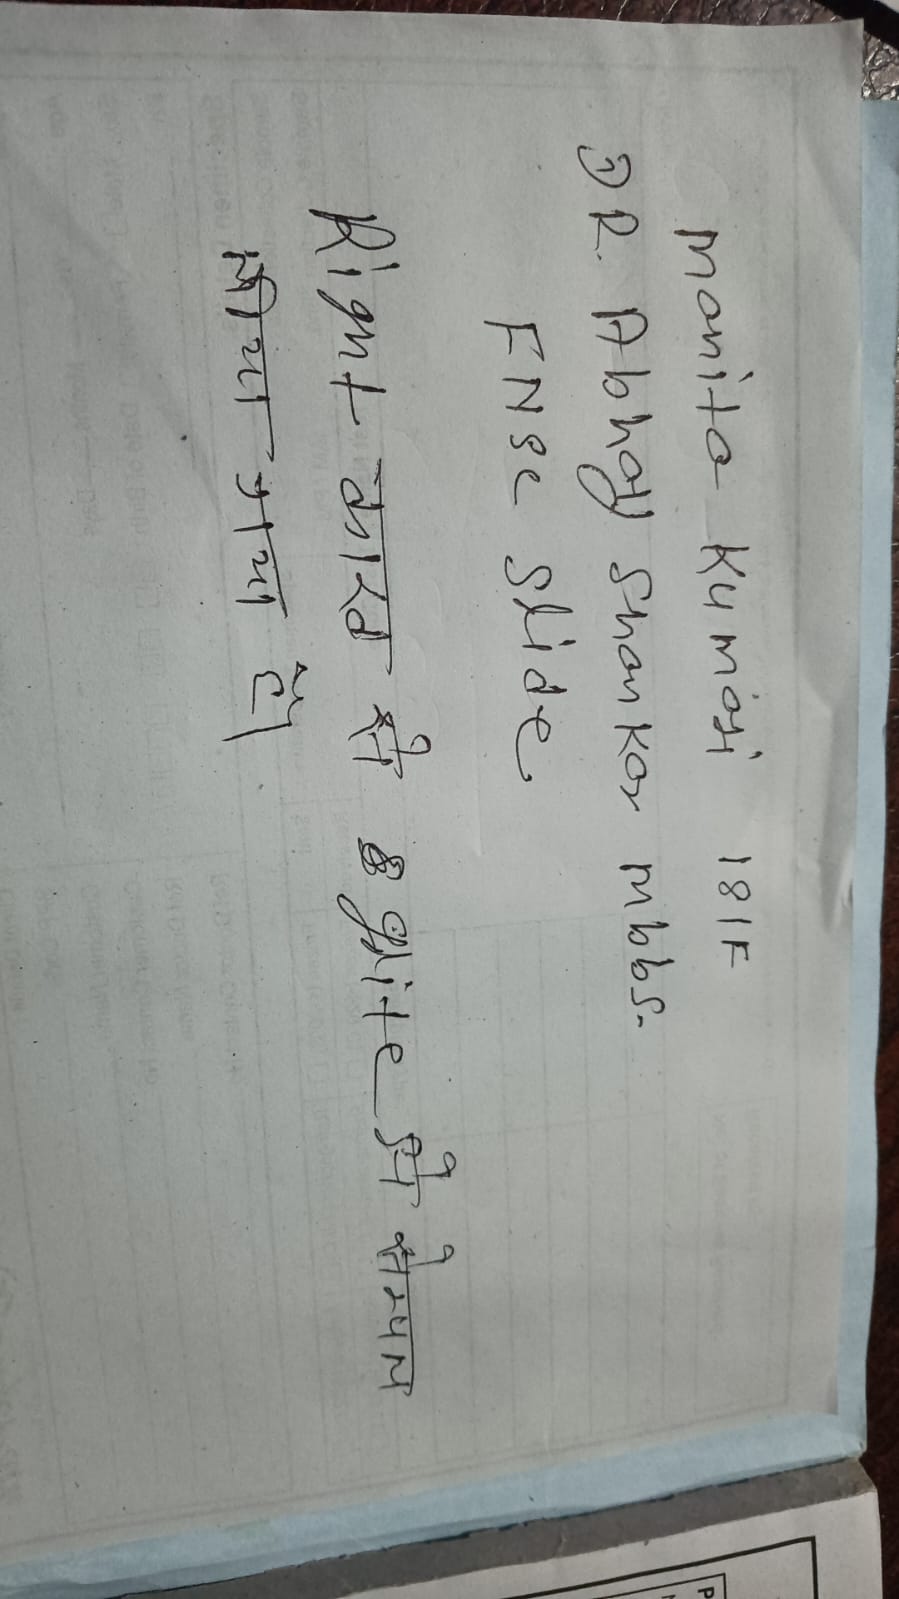 Manita Kumari 18/F
DR. Abhay Shankar mbbs.
FNSC Slide
Right काख से glite से सेम्पल
लीया गया है।